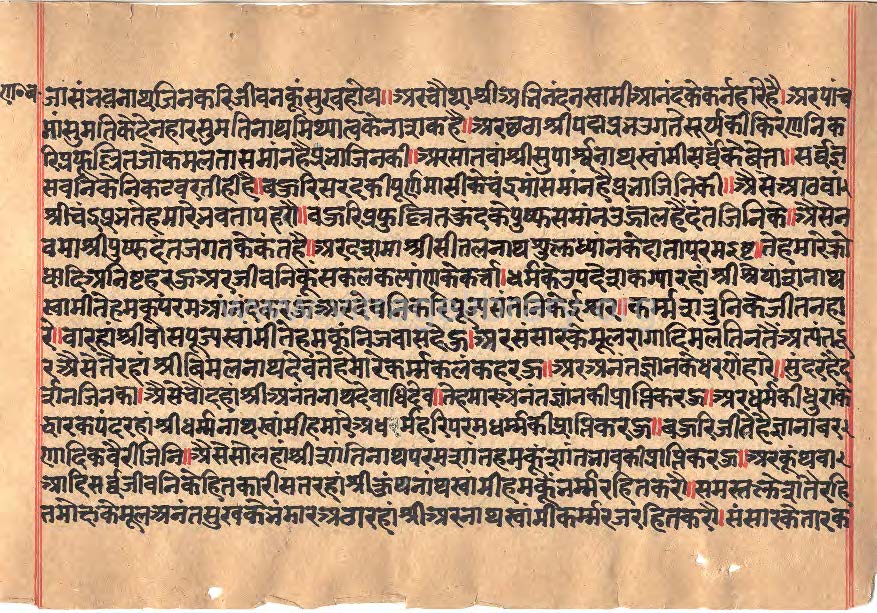 जो संनवनाथजिनकरिजीवनकूंसुखहोय॥अरचौथाश्रीअभिनंदनस्वामीआनंदकेकर्नहारेहै॥अरपांच
मांसुमतिकेदेनहारसुमतिनाथमिथ्यात्वकेनाशकहै॥अरछठाश्रीपद्मप्रभउगतेसूर्यकीकिरणनिक
रिप्रफुल्लितजोकमलतासमानहैप्रनाजिनकी॥अरसातवांश्रीसुपार्श्वनाथस्वांमीसर्वकेवेत्ता॥सर्वज्ञ
सवनिकेनिकटवरतीहीहै॥बहुरिसरदकीपूर्णमासीकेचंद्रमांसमांनहैप्रनाजिनिकी॥ऐसेआठवां
श्रीचंद्रप्रनतेहमारेनवतापहरौ॥बहुरिप्रफुल्लितकुंदकेपुष्फसमांनउज्जलहैदंतजिनिके॥ऐसेन
वमाश्रीपुष्फदंतजगतकेकंतहै॥अरदशमाश्रीसीतलनाथशुक्लध्यांनकेदातापरमइष्ट॥तेहमारेक्रो
धादिअनिष्टहरहुअरजीवनिकूंसकलकल्याणकेकर्ता॥धर्मकेउपदेशकग्यारहांश्रीश्रेयांशनाथ
स्वांमीतेहमकूंपरमआनं
कर्मशत्रुनिकेजीतनहा
रे॥बारहांश्रीवासपूज्यस्वांमीतेहमकूंनिजवासदेहु॥अरसंसारकेमूलरागादिमलतिनतैंअत्यंतदू
रऐसेतेरहांश्रीविमलनाथदेवतेहमारेकर्मकलंकहरहु॥अरअनंतज्ञानकेधरणेंहारे॥सुंदरहैद
र्शनजिनका॥ऐसेचौदहांश्रीअनंतनाथदेवाधिदेव॥तेहमारेअनंतज्ञांनकीप्राप्तिकरहु॥अरधर्मकीधुराके
धारकपंदरहांश्रीधर्मनाथस्वांमीहमारेअधर्महरिपरमधर्मकीप्राप्तिकरहु॥बहुरिजीतेहैज्ञानावर
णादिकवैरीजिनि॥ऐसेसोलहांश्रीशांतिनाथपरमशांतहमकूंशांतनावकीप्राप्तिकरहु॥अरकुंथवा
आदिसर्वजीवनिकेहितकारीसतरहांश्रीकुंथनाथस्वांमीहमकूंनर्मरहितकरौ॥समस्तक्लेशतैंरहि
तमोक्षकेमूलअनंतसुखकेनंडारअठारहांश्रीअरनाथस्वांमीकर्मरजरहितकरौ॥संसारकेतारक